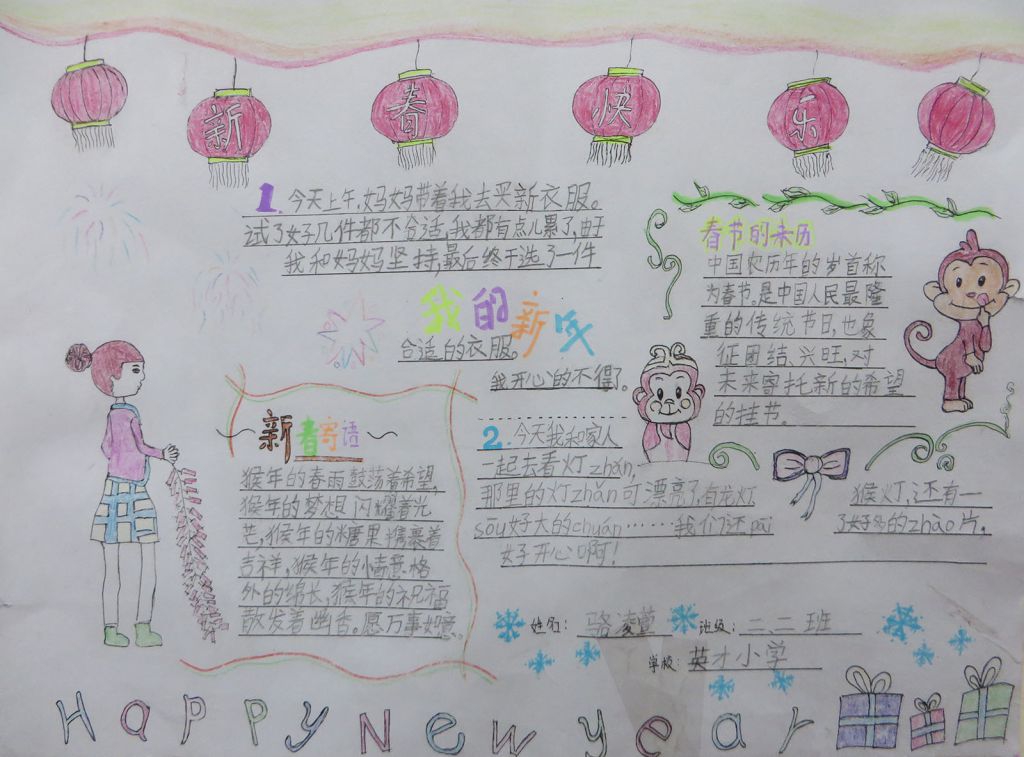 新春快乐
1.今天上午,妈妈带着我去买新衣服。
试了好几件都不合适,我都有点儿累了,由于
我和妈妈坚持,最后终于选了一件
合适的衣服。
我开心的不得了。
我的新年
春节的来历
中国农历年的岁首称
为春节。是中国人民最隆
重的传统节日,也象
征团结、兴旺,对
未来寄托新的希望
的挂节。
新春寄语
猴年的春雨鼓荡着希望,
猴年的梦想闪耀着光
芒,猴年的糖果携裹着
吉祥,猴年的情意格
外的绵长,猴年的祝福
散发着幽香。愿万事如意。
2.今天我和家人
一起去看灯zhǎn,
那里的灯zhǎn可漂亮了,有龙灯
sōu好大的chuán……我们还pāi
好开心啊!
猴灯,还有一
了好多的zhào片。
姓名:骆凌萱 班级:二、二班
学校:英才小学
Happy New year